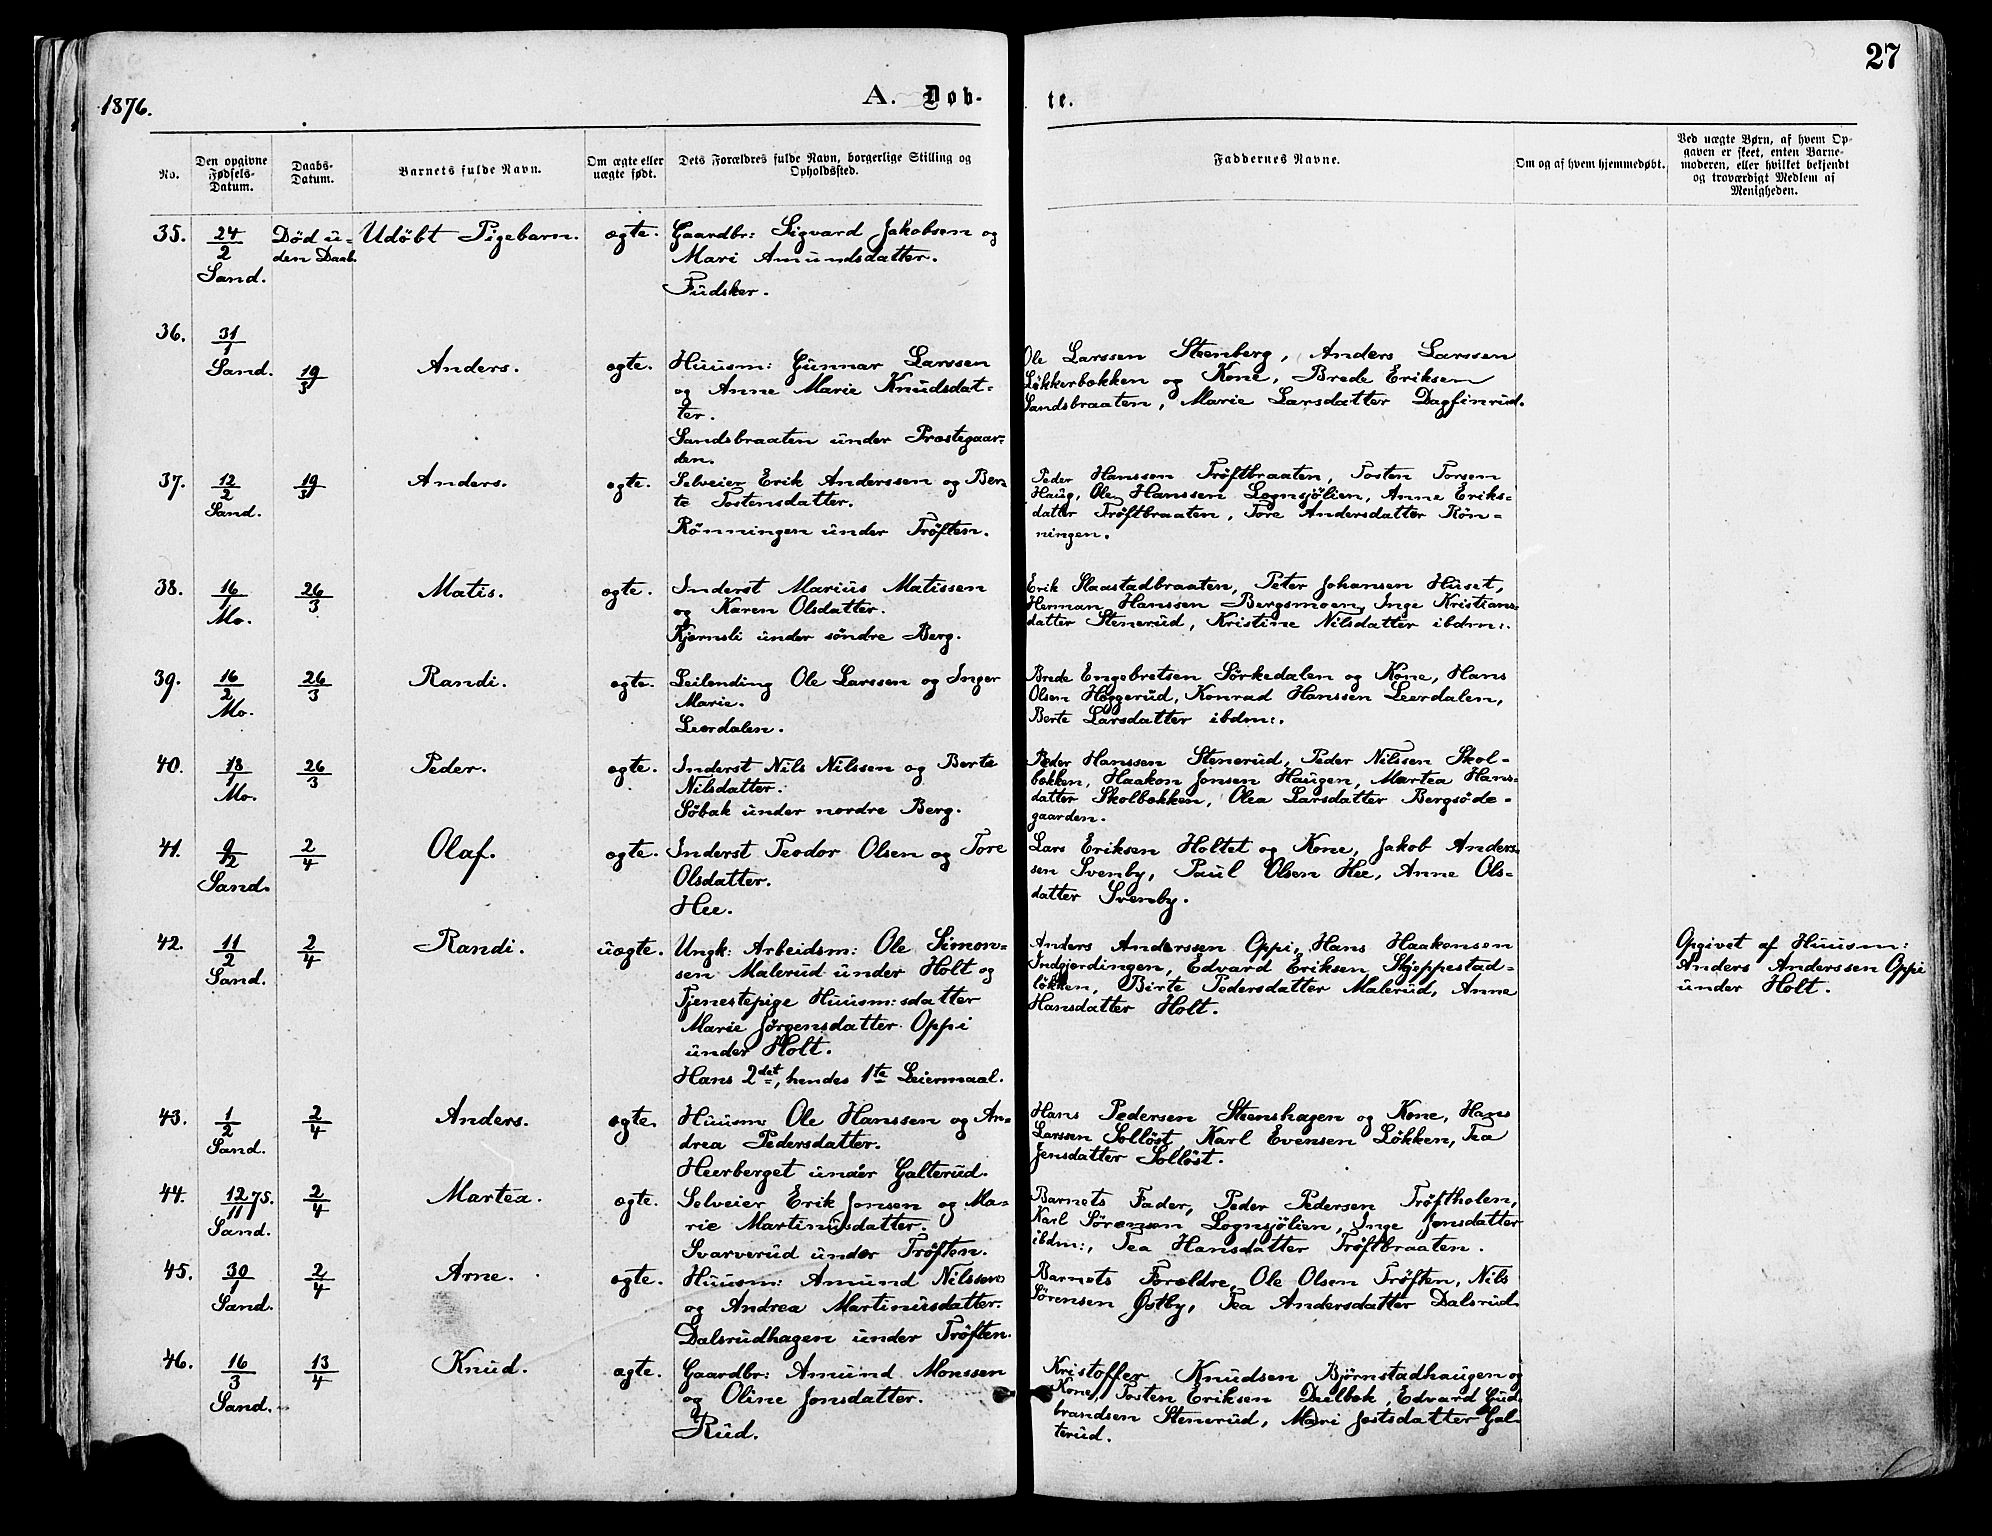 27
1876.
A. Døb-
te.
No.
Den opgivne
Fødsels-
Datum.
Daabs-
Datum.
Barnets fulde Navn.
Om ægte eller
uægte født.
Dets Forældres fulde Navn, borgerlige Stilling og
Opholdssted.
Faddernes Navne.
Om og af hvem hjemmedøbt.
Ved uægte Børn, af hvem Op-
gaven er skeet, enten Barne-
moderen, eller hvilket bekjendt
og troværdigt Medlem af
Menigheden.
35.
24/2
Sand.
Død u-
den Daab.
Udøbt Pigebarn.
ægte.
Gaardbr: Sigvard Jakobsen og
Mari Amundsdatter.
Fudsker.
36.
31/1
Sand.
19/3
Anders.
ægte.
Huusm: Gunnar Larssen
og Anne Marie Knudsdat-
ter.
Sandsbraaten under Præstegaar-
den.
Ole Larssen Steenberg, Anders Larssen
Løkkerbækken og Kone, Brede Eriksen
Sandsbraaten, Marie Larsdatter Dagfinrud.
37.
12/2
Sand.
19/3
Anders.
ægte.
Selveier Erik Anderssen og Ber-
te Tostensdatter.
Rønningen under Trøften.
Peder Hanssen Trøftbraaten, Tosten Torsen
Haug, Ole Hanssen Lognsjølien, Anne Eriks-
datter Trøftbraaten, Tore Andersdatter Røn-
ningen.
38.
16/1
Mo.
26/3
Matis.
ægte.
Inderst Marius Matissen
og Karen Olsdatter.
Kjernsli under søndre Berg.
Erik Slaastadbraaten, Peter Johansen Huset,
Herman Hanssen Bergsmoen, Inge Kristians-
datter Stenerud, Kristine Nilsdatter ibdm:.
39.
16/2
Mo.
26/3
Randi.
ægte.
Leilending Ole Larssen og Inger
Marie.
Leerdalen.
Brede Engebretsen Sørkedalen og Kone, Hans
Olsen Høggerud, Konrad Hanssen Leerdalen,
Berte Larsdatter ibdm:.
40.
18/1
Mo.
26/3
Peder.
ægte.
Inderst Nils Nilssen og Berte
Nilsdatter.
Søbak under nordre Berg.
Peder Hanssen Stenerud, Peder Nilsen Skol-
bækken, Haakon Jonsen Haugen, Martea Hans-
datter Skolbækken, Olea Larsdatter Bergsøde-
gaarden.
41.
9/12
Sand.
2/4
Olaf.
ægte.
Inderst Teodor Olsen og Tore
Olsdatter.
Hee.
Lars Eriksen Holtet og Kone, Jakob Anders-
sen Svenby, Paul Olsen Hee, Anne Ols-
datter Svenby.
42.
11/2
Sand.
2/4
Randi.
uægte.
Ungk: Arbeidsm: Ole Simon-
sen Malerud under Holt og
Tjenestepige Huusm:sdatter
Marie Jørgensdatter Oppi
under Holt.
Hans 2det, hendes 1te Leiermaal.
Anders Anderssen Oppi, Hans Haakensen
Indgjerdingen, Edvard Eriksen Skjeppestad-
løkken, Birte Pedersdatter Malerud, Anne
Hansdatter Holt.
Opgivet af Huusm:
Anders Anderssen Oppi
under Holt.
43.
1/2
Sand.
2/4
Anders.
ægte.
Huusm Ole Hanssen og An-
drea Pedersdatter.
Heerberget under Galterud.
Hans Pedersen Steenshagen og Kone, Hans
Larssen Solløst, Karl Evensen Løkken, Tea
Jensdatter Solløst.
44.
12/11 75.
Sand.
2/4
Martea.
ægte.
Selveier Erik Jonsen og Ma-
rie Martinusdatter.
Svarverud under Trøften.
Barnets Fader, Peder Pedersen Trøftholen,
Karl Sørensen Lognsjølien, Inge Jonsdatter
ibdm:, Tea Hansdatter Trøftbraaten.
45.
30/1
Sand.
2/4
Arne.
ægte.
Huusm: Amund Nilssen
og Andrea Martinusdatter.
Dalsrudhagen under Trøften.
Barnets Forældre, Ole Olsen Trøften, Nils
Sørensen Østby, Tea Andersdatter Dalsrud.
46.
16/3
Sand.
13/4
Knud.
ægte.
Gaardbr: Amund Monssen
og Oline Jonsdatter.
Rud.
Kristoffer Knudsen Bjørnstadhaugen og
Kone, Tosten Eriksen Dulbæk, Edvard Gud-
brandsen Stenerud, Mari Jostsdatter Gal-
terud.